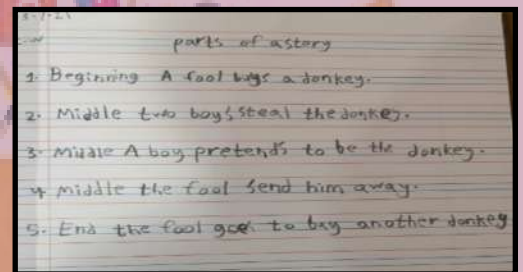 3-1-21
C-W
parts of a story
1. Beginning A fool buys a donkey.
2. Middle two boy's steal the donkey.
3. Middle A boy pretends to be the donkey.
4 Middle the fool send him away.
5. End the fool goes to buy another donkey